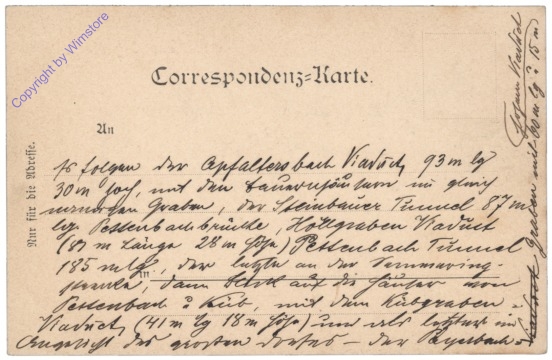 Copyright by Wimstore
Correspondenz-Karte.
An
Nur für die Adresse.
Es folgen der Apfaltersbach Viaduct, 93 m lg
30 m hoch, mit den Bauernhäusern im gleich
namigen Graben, der Steinbauer Tunnel 87 m
lg. Pettenbachbrücke, Höllgraben Viaduct
(87 m Länge 28 m Höhe) Pettenbach Tunnel
185 m lg, der letzte an der Semmering-
strecke, dann Blick auf die Häuser von
Pettenbach u Küb, mit dem Kübgraben-
Viaduct, (41 m lg 18 m Höhe) und als letzter im
Angesicht des großen Dorfes – der Payerbach-
graben mit 60 m lg u 15 m
Viaduct